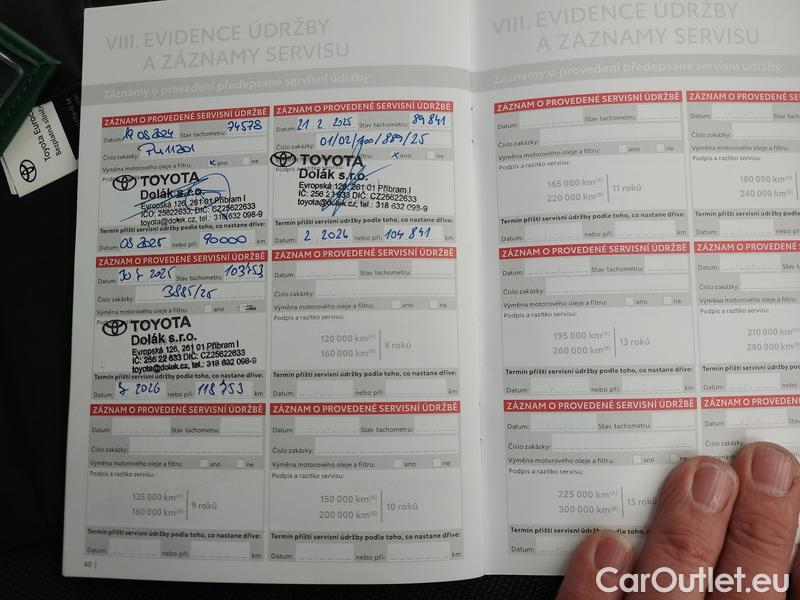 VIII. EVIDENCE ÚDRŽBY
A ZÁZNAMY SERVISU
Záznamy o provedení předepsané servisní údržby
ZÁZNAM O PROVEDENÉ SERVISNÍ ÚDRŽBĚ
Datum: 19 08 2024 Stav tachometru: 74578
Číslo zakázky:
Výměna motorového oleje a filtru: x ano ne
TOYOTA
Dolák s.r.o.
Evropská 126, 261 01 Příbram I
IČO: 25622633, DIČ: CZ25622633
toyota@dolak.cz, tel.: 318 632 098-9
Termín příští servisní údržby podle toho, co nastane dříve:
Datum: 08 2025 nebo při: 90000 km
ZÁZNAM O PROVEDENÉ SERVISNÍ ÚDRŽBĚ
Datum: 21 2 2025 Stav tachometru: 89 841
Číslo zakázky: 01/02/700/889/25
x ano ne
TOYOTA
Dolák s.r.o.
Evropská 126, 261 01 Příbram I
toyota@dolak.cz, tel.: 318 632 098-9
Termín příští servisní údržby podle toho, co nastane dříve:
Datum: 2 2026 nebo při: 104 841 km
ZÁZNAM O PROVEDENÉ SERVISNÍ ÚDRŽBĚ
Datum: 30 7 2025 Stav tachometru: 103753
Číslo zakázky: 3885/25
Výměna motorového oleje a filtru: ano ne
TOYOTA
Dolák s.r.o.
Evropská 126, 261 01 Příbram I
IČ: 256 22 633 DIČ: CZ25622633
toyota@dolak.cz, tel.: 318 632 098-9
Termín příští servisní údržby podle toho, co nastane dříve:
Datum: 7 2026 nebo při: 118 753 km
ZÁZNAM O PROVEDENÉ SERVISNÍ ÚDRŽBĚ
Datum: Stav tachometru:
Číslo zakázky:
Výměna motorového oleje a filtru: ano ne
Podpis a razítko servisu:
120 000 km(A)
160 000 km(B)
8 roků
Termín příští servisní údržby podle toho, co nastane dříve:
Datum: nebo při: km
ZÁZNAM O PROVEDENÉ SERVISNÍ ÚDRŽBĚ
Datum: Stav tachometru:
Číslo zakázky:
Výměna motorového oleje a filtru: ano ne
Podpis a razítko servisu:
135 000 km(A)
180 000 km(B)
9 roků
Termín příští servisní údržby podle toho, co nastane dříve:
Datum: nebo při: km
ZÁZNAM O PROVEDENÉ SERVISNÍ ÚDRŽBĚ
Datum: Stav tachometru:
Číslo zakázky:
Výměna motorového oleje a filtru: ano ne
Podpis a razítko servisu:
150 000 km(A)
200 000 km(B)
10 roků
Termín příští servisní údržby podle toho, co nastane dříve:
Datum: nebo při: km
40
VIII. EVIDENCE ÚDRŽBY
A ZÁZNAMY SERVISU
Záznamy o provedení předepsané servisní údržby
ZÁZNAM O PROVEDENÉ SERVISNÍ ÚDRŽBĚ
Datum: Stav tachometru:
Číslo zakázky:
Výměna motorového oleje a filtru: ano ne
Podpis a razítko servisu:
165 000 km(A)
220 000 km(B)
11 roků
Termín příští servisní údržby podle toho, co nastane dříve:
Datum: nebo při: km
ZÁZNAM O PROVEDENÉ
Datum:
Číslo zakázky:
Výměna motorového oleje
Podpis a razítko servisu:
180 000 km(A)
240 000 km(B)
Termín příští servisní údržby
Datum:
ZÁZNAM O PROVEDENÉ SERVISNÍ ÚDRŽBĚ
Datum: Stav tachometru:
Číslo zakázky:
Výměna motorového oleje a filtru: ano ne
Podpis a razítko servisu:
195 000 km(A)
260 000 km(B)
13 roků
Termín příští servisní údržby podle toho, co nastane dříve:
Datum: nebo při: km
ZÁZNAM O PROVEDENÉ
Datum:
Číslo zakázky:
Výměna motorového oleje
Podpis a razítko servisu:
210 000 km(A)
280 000 km(B)
Termín příští servisní údržby
Datum:
ZÁZNAM O PROVEDENÉ SERVISNÍ ÚDRŽBĚ
Datum: Stav tachometru:
Číslo zakázky:
Výměna motorového oleje a filtru: ano ne
Podpis a razítko servisu:
225 000 km(A)
300 000 km(B)
15 roků
Termín příští servisní údržby podle toho,
Datum: nebo při:
ZÁZNAM O PROVEDENÉ
Datum:
Číslo zakázky:
TOYOTA
CarOutlet.eu